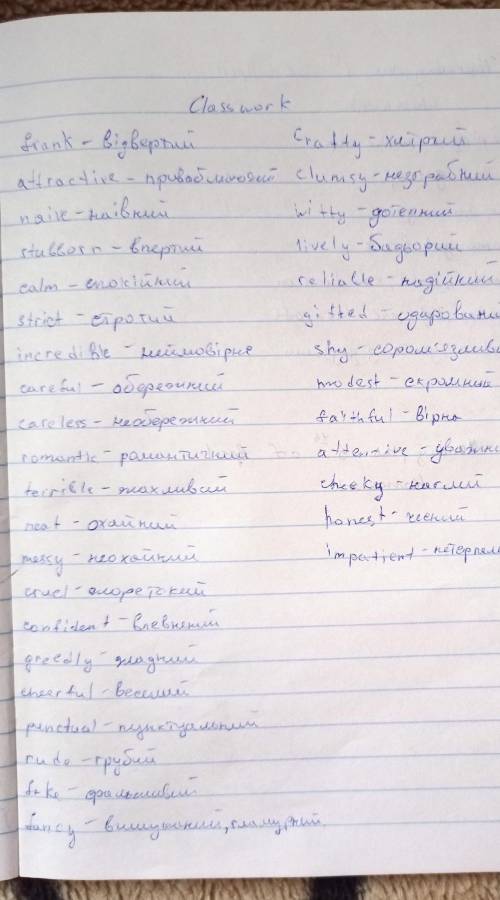 Classwork
frank - відвертий
attractive - привабливий
naive - наївний
stubborn - впертий
calm - спокійний
strict - строгий
incredible - неймовірне
careful - обережний
careless - необережний
romantic - романтичний
terrible - жахливий
neat - охайний
messy - неохайний
cruel - жорстокий
confident - впевнений
greedly - жадний
cheerful - веселий
punctual - пунктуальний
rude - грубий
fake - фальшивий
fancy - вишуканий, гламурний
Crafty - хитрий
clumsy - незграбний
witty - дотепний
lively - бадьорий
reliable - надійний
gifted - одаровани
shy - сором'язлива
modest - скромний
faithful - вірна
attentive - уважни
cheeky - наглий
honest - чесний
impatient - нетерпели